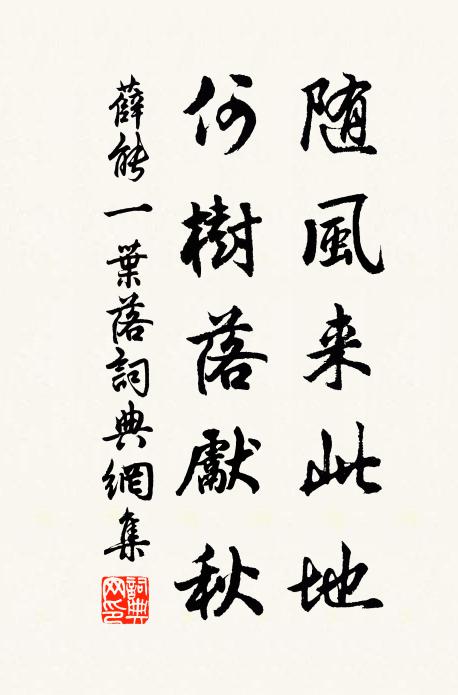 随風来此地
何樹落獻秋
薛能一葉落詞典網集
詞典網印